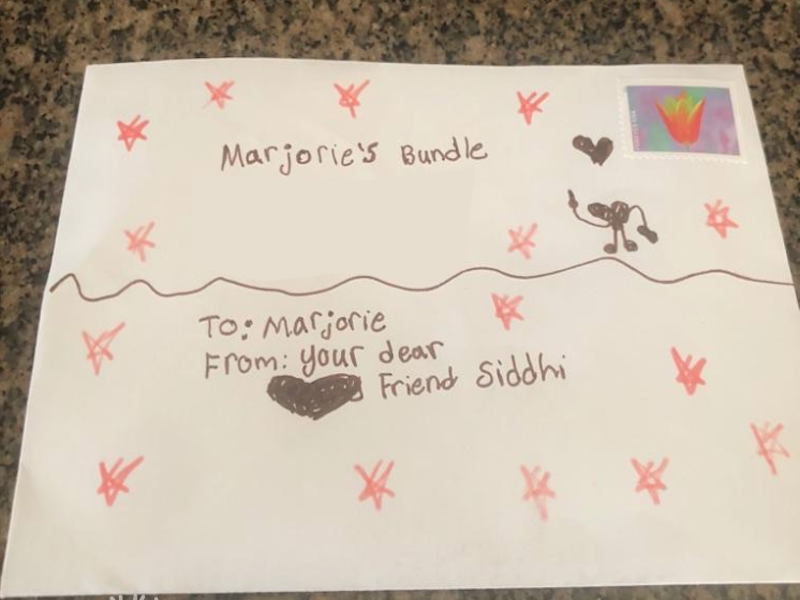 Marjorie's Bundle
To: Marjorie
From: your dear
Friend Siddhi